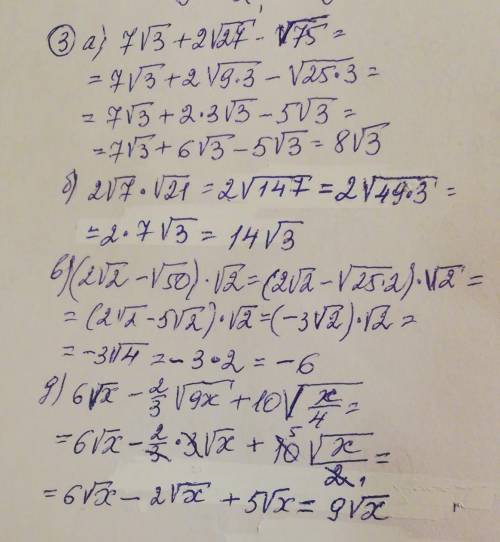 ③ а) 7√3 + 2√27 - √75 =
= 7√3 + 2√9·3 - √25·3 =
= 7√3 + 2·3√3 - 5√3 =
= 7√3 + 6√3 - 5√3 = 8√3
б) 2√7 · √21 = 2√147 = 2√49·3 =
= 2·7√3 = 14√3
в) (2√2 - √50)·√2 = (2√2 - √25·2)·√2 =
= (2√2 - 5√2)·√2 = (-3√2)·√2 =
= -3√4 = -3·2 = -6
д) 6√x - 2/3 √9x + 10√x/4 =
= 6√x - 2/3 · 3√x + 10 5 √x/2 1 =
= 6√x - 2√x + 5√x = 9√x